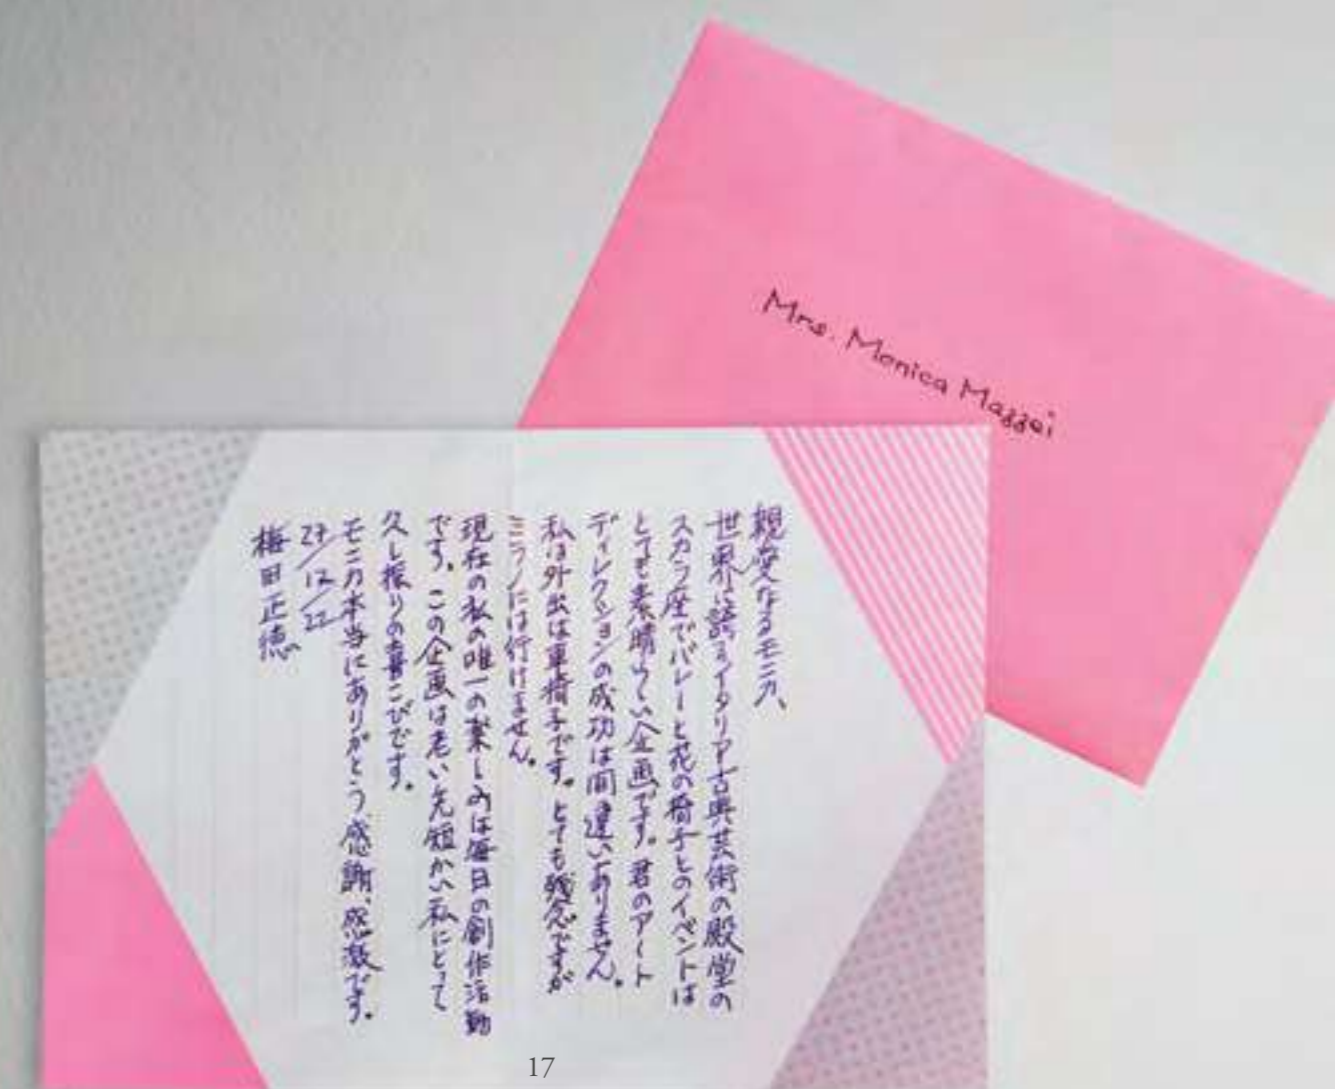 Mrs. Monica Maggei
親愛なるモニカ、
世界に誇るイタリア古典芸術の殿堂の
スカラ座でバレーと花の椅子とのイベントは
とても素晴らしい企画です。君のアート
ディレクションの成功は間違いありません。
私は外出は車椅子です。とても残念ですが
ミラノには行けません。
現在の私の唯一の楽しみは毎日の創作活動
です。この企画は老い先短かい私にとって
久し振りの喜こびです。
モニカ本当にありがとう感謝、感激です。
27/12/22
梅田正徳
17